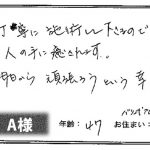 丁寧に施術して下さるので
人の手に癒されます。
明日から頑張ろうという幸
A様
年齢：47
お住まい：